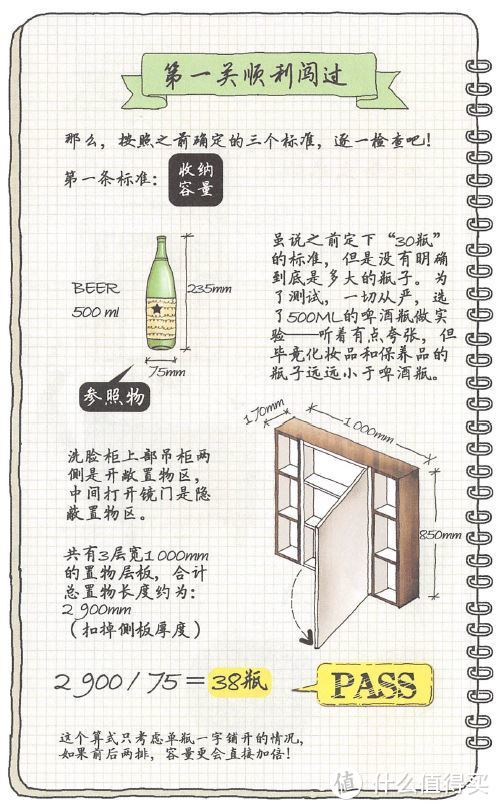 第一关顺利闯过
那么，按照之前确定的三个标准，逐一检查吧！
第一条标准：
收纳
容量
BEER
500 ml
235mm
75mm
参照物
虽说之前定下“30瓶”
的标准，但是没有明确
到底是多大的瓶子。为
了测试，一切从严，选
了500ML的啤酒瓶做实
验——听着有点夸张，但
毕竟化妆品和保养品的
瓶子远远小于啤酒瓶。
170mm
1000mm
850mm
洗脸柜上部吊柜两
侧是开敞置物区，
中间打开镜门是隐
蔽置物区。
共有3层宽1000mm
的置物层板，合计
总置物长度约为：
2900mm
（扣掉侧板厚度）
2900/75=38瓶
PASS
这个算式只考虑单瓶一字铺开的情况，
如果前后两排，容量更会直接加倍！
值 什么值得买